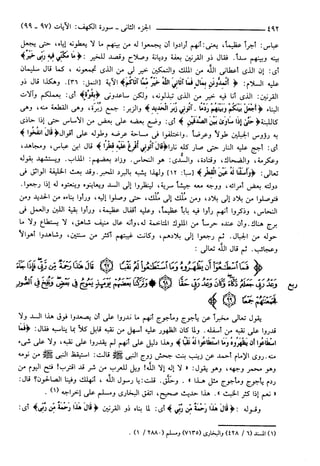 ٤٩٢
الجزء الثاني - سورة الكهف: الآيات (٩٧ - ٩٩)
عباس: أجراً عظيماً، يعني: أنهم أرادوا أن يجمعوا له من بينهم ما لا يعطونه إياه، حتى يجعل
بينه وبينهم سداً. فقال ذو القرنين بعفة وديانة وصلاح وقصد للخير: ﴿ما مكني فيه ربي خير﴾
أي: إن الذي أعطاني الله من الملك والتمكين خير لي من الذي تجمعونه، كما قال سليمان
عليه السلام: ﴿أتمدونن بمال فما آتاني الله خير مما آتاكم﴾ الآية [النمل: ٣٦]. وهكذا قال ذو
القرنين: الذي أنا فيه خير من الذي تبذلونه، ولكن ساعدوني ﴿بقوة﴾ أي: بعملكم وآلات
البناء ﴿أجعل بينكم وبينهم ردما . آتوني زبر الحديد﴾ والزبر: جمع زبرة، وهي القطعة منه، وهي
كاللبنة ﴿حتى إذا ساوى بين الصدفين﴾ أي: وضع بعضه على بعض من الأساس حتى إذا حاذى
به رؤوس الجبلين طولاً وعرضاً. واختلفوا في مساحة عرضه وطوله على أقوال ﴿قال انفخوا﴾
أي: أجج عليه النار حتى صار كله ناراً ﴿قال آتوني أفرغ عليه قطرا﴾ قال ابن عباس، ومجاهد،
وعكرمة، والضحاك، وقتادة، والسدي: هو النحاس. وزاد بعضهم: المذاب. ويستشهد بقوله
تعالى: ﴿وأسلنا له عين القطر﴾ [سبأ: ١٢] ولهذا يشبه بالبرد المحبر. وقد بعث الخليفة الواثق في
دولته بعض أمرائه، ووجه معه جيشاً سرية، لينظروا إلى السد ويعاينوه وينعتوه له إذا رجعوا.
فتوصلوا من بلاد إلى بلاد، ومن ملك إلى ملك، حتى وصلوا إليه، ورأوا بناءه من الحديد ومن
النحاس، وذكروا أنهم رأوا فيه باباً عظيماً، وعليه أقفال عظيمة، ورأوا بقية اللبن والعمل في
برج هناك. وأن عنده حرساً من الملوك المتاخمة له، وأنه عال منيف شاهق، لا يستطاع ولا ما
حوله من الجبال. ثم رجعوا إلى بلادهم، وكانت غيبتهم أكثر من سنتين، وشاهدوا أهوالاً
وعجائب. ثم قال الله تعالى:
﴿فما اسطاعوا أن يظهروه وما استطاعوا له نقبا ٩٧ قال هذا رحمة من ربي فإذا جاء
وعد ربي جعله دكاء وكان وعد ربي حقا ٩٨ وتركنا بعضهم يومئذ يموج في بعض ونفخ في الصور
فجمعناهم جمعا ٩٩﴾
ربع
يقول تعالى مخبراً عن يأجوج ومأجوج أنهم ما قدروا على أن يصعدوا فوق هذا السد ولا
قدروا على نقبه من أسفله. ولما كان الظهور عليه أسهل من نقبه قابل كلاً بما يناسبه فقال: ﴿فما
اسطاعوا أن يظهروه وما استطاعوا له نقبا﴾ وهذا دليل على أنهم لم يقدروا على نقبه، ولا على شيء
منه. روى الإمام أحمد عن زينب بنت جحش زوج النبي ﷺ قالت: استيقظ النبي ﷺ من نومه
وهو محمر وجهه، وهو يقول: «لا إله إلا الله! ويل للعرب من شر قد اقترب! فتح اليوم من
ردم يأجوج ومأجوج مثل هذا». وحلق. قلت: يا رسول الله، أنهلك وفينا الصالحون؟ قال:
«نعم إذا كثر الخبث». هذا حديث صحيح، اتفق البخاري ومسلم على إخراجه (١).
وقوله: ﴿قال هذا رحمة من ربي﴾ أي: لما بناه ذو القرنين ﴿قال هذا رحمة من ربي﴾ أي:
(١) المسند (٦/ ٤٢٨) والبخاري (٧١٣٥) ومسلم (٢٨٨٠/ ١).